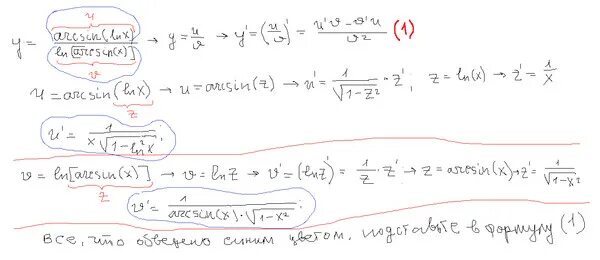 u
y = arcsin(lnx) / ln[arcsin(x)] → y = u/v → y' = (u/v)' = (u'v - v'u) / v² (1)
v
u = arcsin(lnx) → u = arcsin(z) → u' = 1/√(1-z²) · z'; z = ln(x) → z' = 1/x
z
u' = 1 / (x √(1-ln²x));
v = ln[arcsin(x)] → v = lnz → v' = (lnz)' = 1/z · z' → z = arcsin(x) → z' = 1/√(1-x²)
z
v' = 1 / (arcsin(x) · √(1-x²));
все, что обведено синим цветом, подставьте в формулу (1)